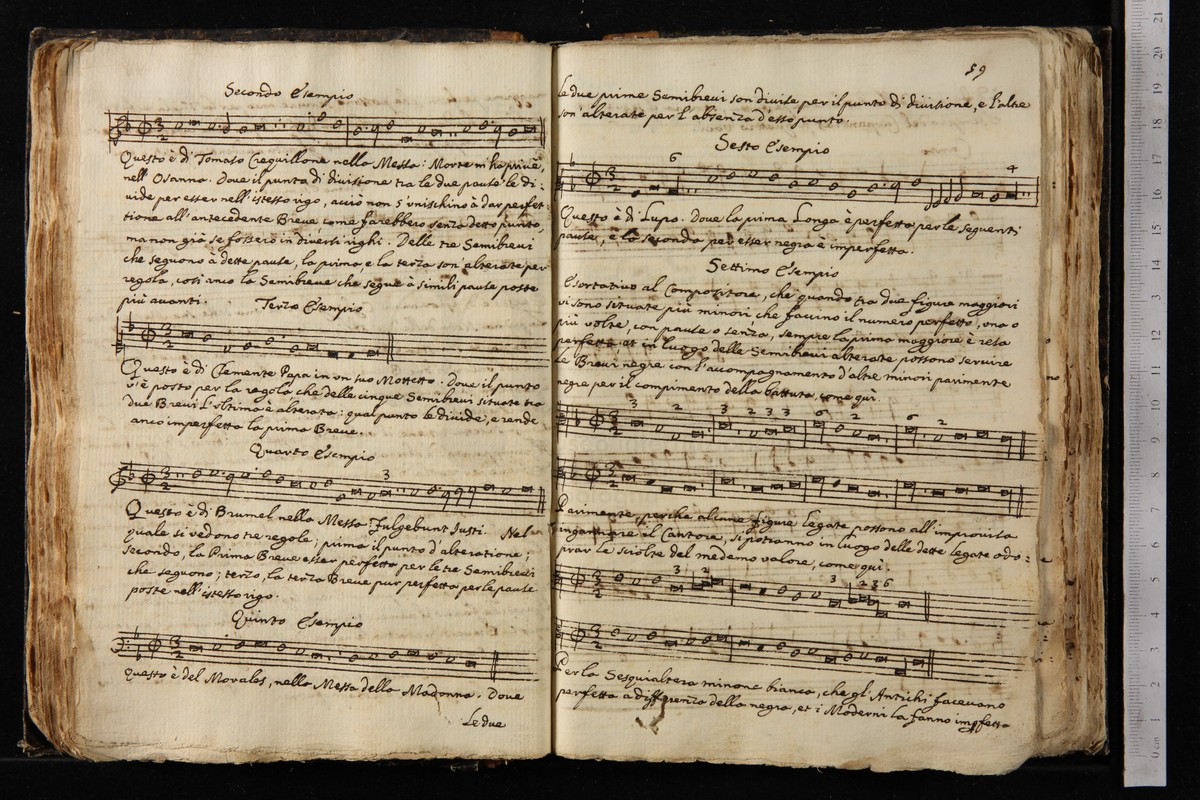 Secondo Esempio
Questo è di Tomaso Crequillone nella Messa: Morte m'ha privè,
nell'Osanna. Dove il punto di divisione tra le due pause le di:
uide per esser nell'istesso rigo, acciò non s'unischino à dar perfet:
tione all'antecedente Breve come farebbero senza detto punto,
ma non già se fossero in diversi righi. Delle tre Semibrevi
che seguono à dette pause, la prima e la terza son'alterate per
regola, così anco la Semibreve che segue à simili pause poste
più avanti.
Terzo Esempio
Questo è di Clemente Papa in un suo Mottetto. Dove il punto
v'è posto per la regola che delle cinque Semibrevi situate tra
due Brevi l'Ultima è alterata: qual punto le divide, e rende
anco imperfetta la prima Breve.
Quarto Esempio
3
Questo è di Brumel nella Messa Fulgebunt Iusti. Nel
quale si vedono tre regole; prima il punto d'alteratione;
secondo, la Prima Breve esser perfetta per le tre Semibrevi
che seguono; terzo, la terza Breve pur perfetta per le pause
poste nell'istesso rigo.
Quinto Esempio
Questo è del Morales, nella Messa della Madonna. Dove
Le due
59
le due prime Semibrevi son divise per il punto di divisione, e l'altre
son'alterate per l'absenza d'esso punto.
Sesto Esempio
6 4
Questo è di Lupo. Dove la prima Longa è perfetta per le seguenti
pause, e la seconda per esser negra è imperfetta.
Settimo Esempio
Esortativo al Compositore, che quando tra due figure maggiori
vi sono situate più minori che faccino il numero perfetto, una o
più volte, con pause o senza, sempre la prima maggiore è resa
perfetta, et in luogo delle Semibrevi alterate possono servire
le Brevi negre con l'accompagnamento d'altre minori parimente
negre per il compimento della battuta, come qui.
3 2 3 2 3 3 6 2 6 2
Parimente perche alcune figure legate possono all'improvista
ingannare il Cantore, si potranno in luogo delle dette legate ado:
prar le sciolte del medemo valore, come qui.
3 2 3 2 3 6
Per la Sesquialtera minore bianca, che gl'Antichi facevano
perfetta a differenza della negra, et i Moderni la fanno imperfetta